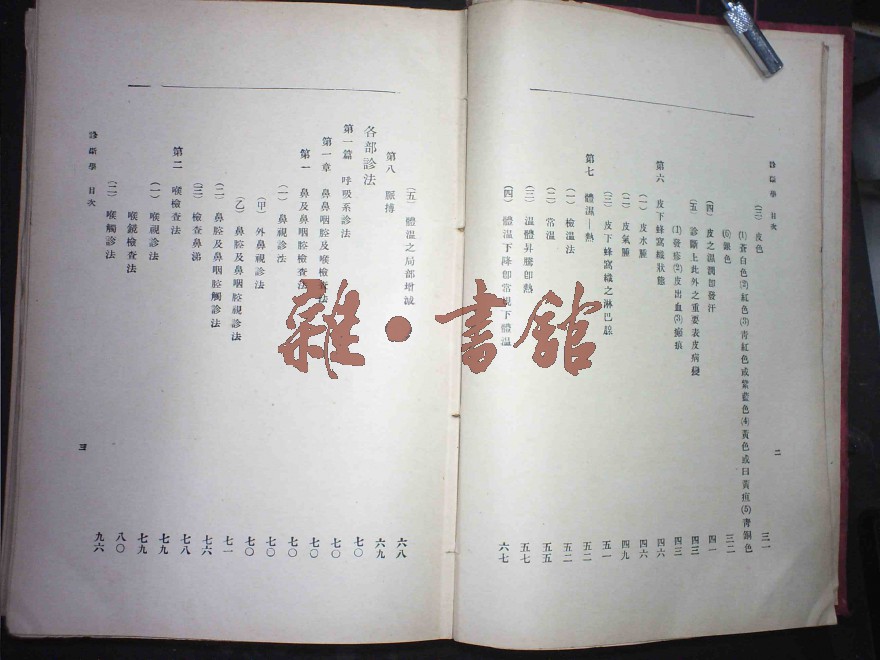 診斷學 目次
二
(三) 皮色 三一
(1)蒼白色(2)紅色(3)青紅色或紫藍色(4)黃色或曰黃疸(5)青銅色
(6)銀色 三二
(四) 皮之溫潤卽發汗 四一
(五) 診斷上此外之重要表皮病變 四三
(1)發疹(2)皮出血(3)瘢痕 四三
第六 皮下蜂窩織狀態 四六
(一) 皮水腫 四六
(二) 皮氣腫 四九
(三) 皮下蜂窩織之淋巴腺 五一
第七 體濕—熱 五二
(一) 檢溫法 五二
(二) 常溫 五五
(三) 溫體昇騰卽熱 五七
(四) 體溫下降卽常規下體溫 六七
(五) 體溫之局部增減 六八
第八 脈搏 六九
各部診法
第一篇 呼吸系診法 七〇
第一章 鼻鼻咽腔及喉檢查法 七〇
第一 鼻及鼻咽腔檢查法 七〇
(一) 鼻視診法 七〇
(甲) 外鼻視診法 七〇
(乙) 鼻腔及鼻咽腔視診法 七〇
(二) 鼻腔及鼻咽腔觸診法 七一
(三) 檢查鼻涕 七六
第二 喉檢查法 七八
(一) 喉視診法 七九
喉鏡檢查法 七九
(二) 喉觸診法 八〇
九六
診斷學 目次
三
雜·書館